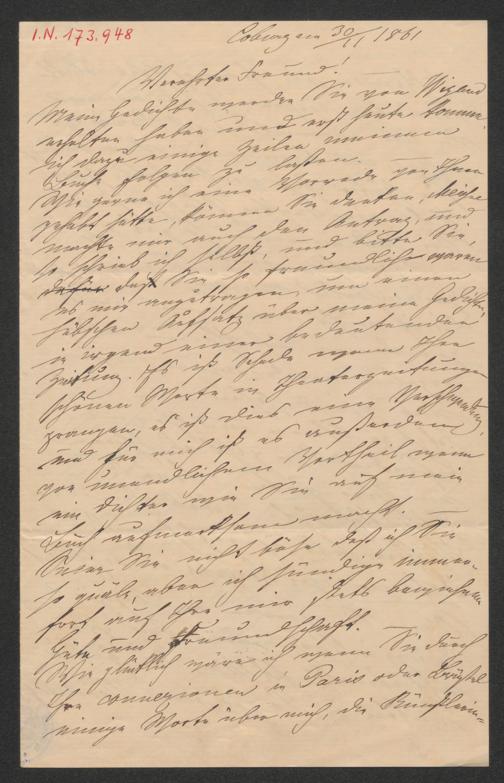 I.N. 173.948
Coburg am 30/11 1861
Verehrter Freund!
Meine Gedichte werden Sie von Wigand
erhalten haben und erst heute komme
ich dazu einige Zeilen meinem
Buche folgen zu lassen.
Wie gerne ich eine Vorrede von Ihnen
gehabt hätte, können Sie denken,
machte mir auch den Antrag, und
so schrieb ich selbst, und bitte Sie,
daß Sie so freundlich waren
es mir angetragen, um einen
hübschen Aufsatz über meine Gedichte,
in irgend einer bedeutenden
Zeitung. Es ist Schade wenn Ihre
schönen Worte in Theaterzeitungen
prangen, es ist dies eine Verschwendung,
und für mich ist es außerdem
von unendlichem Vortheil wenn
ein Dichter wie Sie auf mein
Buch aufmerksam macht. —
Seien Sie nicht böse daß ich Sie
so quäle, aber ich sündige immer-
fort auf Ihre mir stets bewiesene
Güte und Freundschaft. —
Wie glücklich wäre ich wenn Sie durch
Ihre Connexionen in Paris oder Brüssel
einige Worte über mich, die Künstlerin